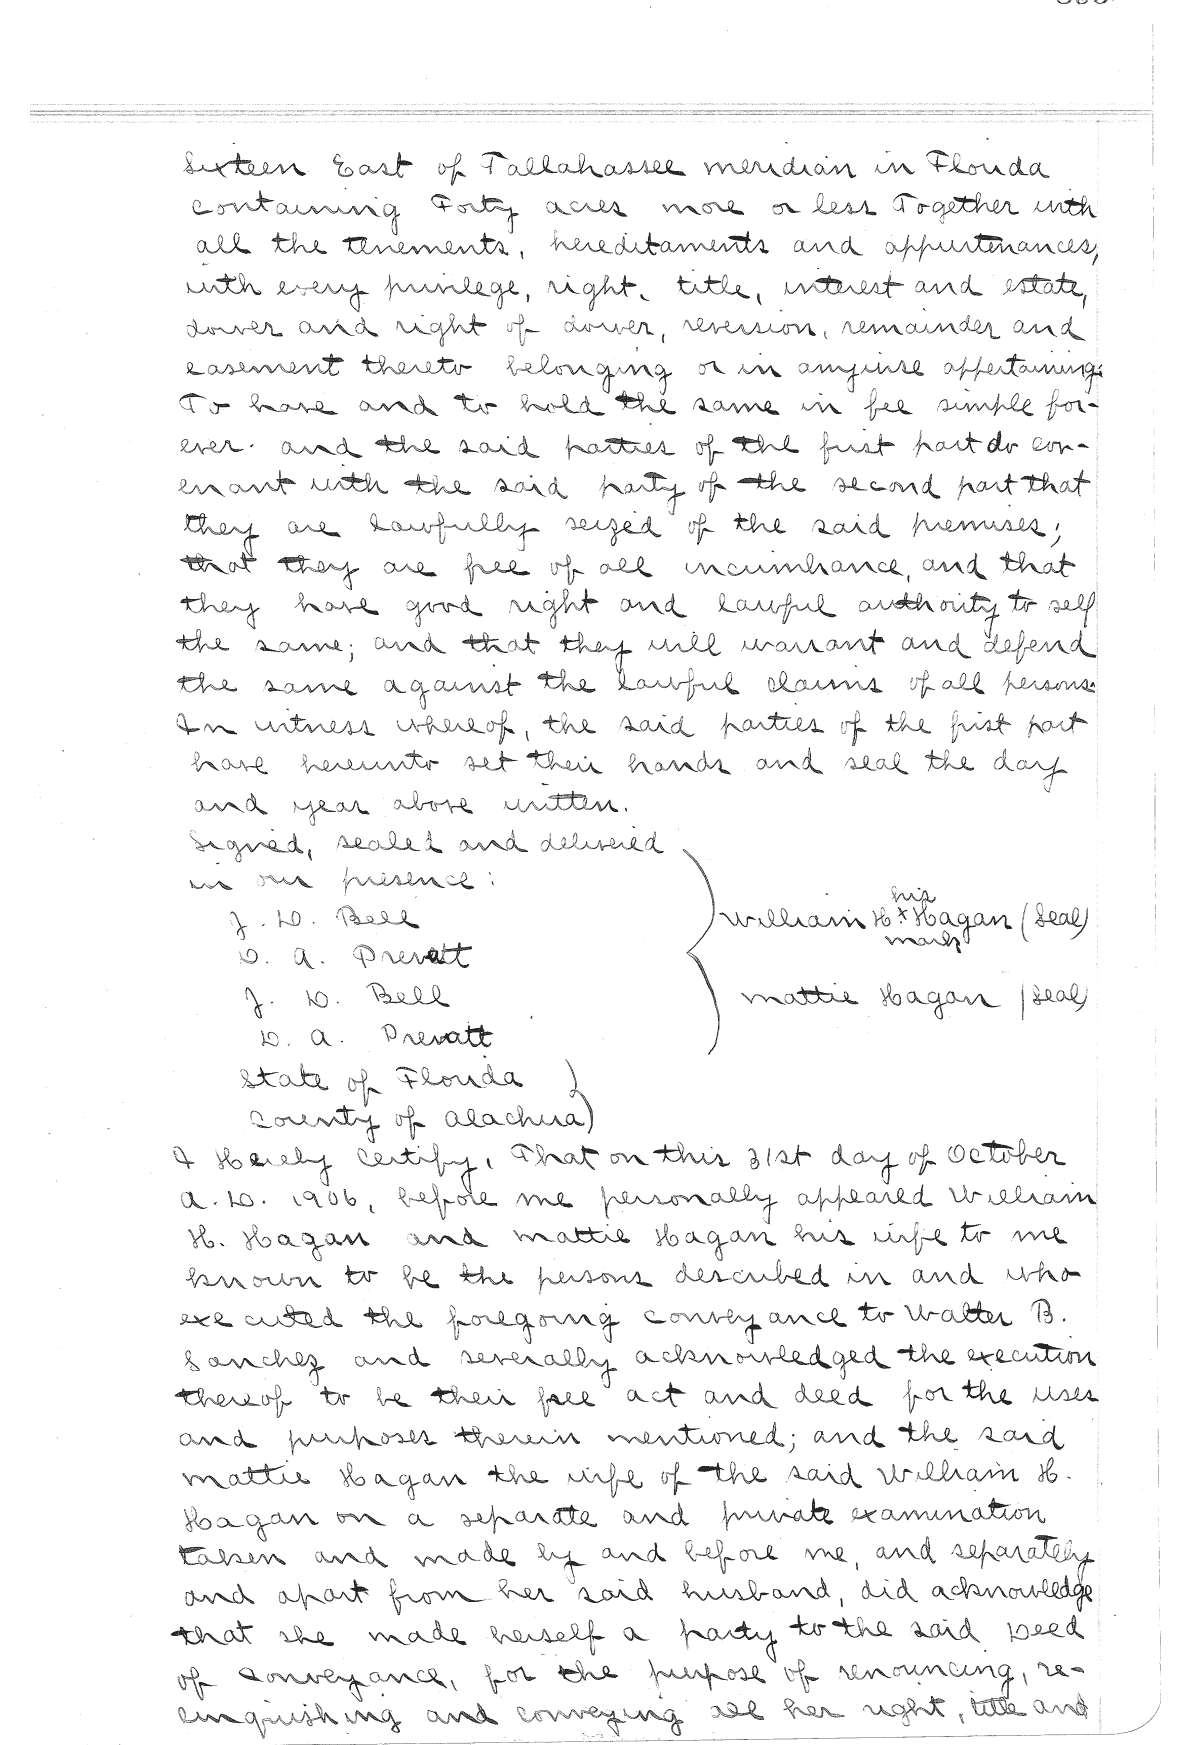 Sixteen East of Tallahassee meridian in Florida
containing Forty acres more or less Together with
all the tenements, hereditaments and appurtenances,
with every privilege, right, title, interest and estate,
dower and right of dower, reversion, remainder and
easement thereto belonging or in anywise appertaining:
To have and to hold the same in fee simple for-
ever. and the said parties of the first part do cov-
enant with the said party of the second part that
they are lawfully seized of the said premises;
that they are free of all incumbrance, and that
they have good right and lawful authority to sell
the same; and that they will warrant and defend
the same against the lawful claims of all persons.
In witness whereof, the said parties of the first part
have hereunto set their hands and seal the day
and year above written.
Signed, sealed and delivered
in our presence:
his
J. D. Bell
William H. x Hagan (Seal)
mark
D. A. Prevatt
J. D. Bell
Mattie Hagan (Seal)
D. A. Prevatt
State of Florida )
County of Alachua )
I Hereby Certify, That on this 31st day of October
A. D. 1906, before me personally appeared William
H. Hagan and Mattie Hagan his wife to me
known to be the persons described in and who
executed the foregoing conveyance to Walter B.
Sanchez and severally acknowledged the execution
thereof to be their free act and deed for the uses
and purposes therein mentioned; and the said
Mattie Hagan the wife of the said William H.
Hagan on a separate and private examination
taken and made by and before me, and separately
and apart from her said husband, did acknowledge
that she made herself a party to the said Deed
of Conveyance, for the purpose of renouncing, re-
linquishing and conveying all her right, title and